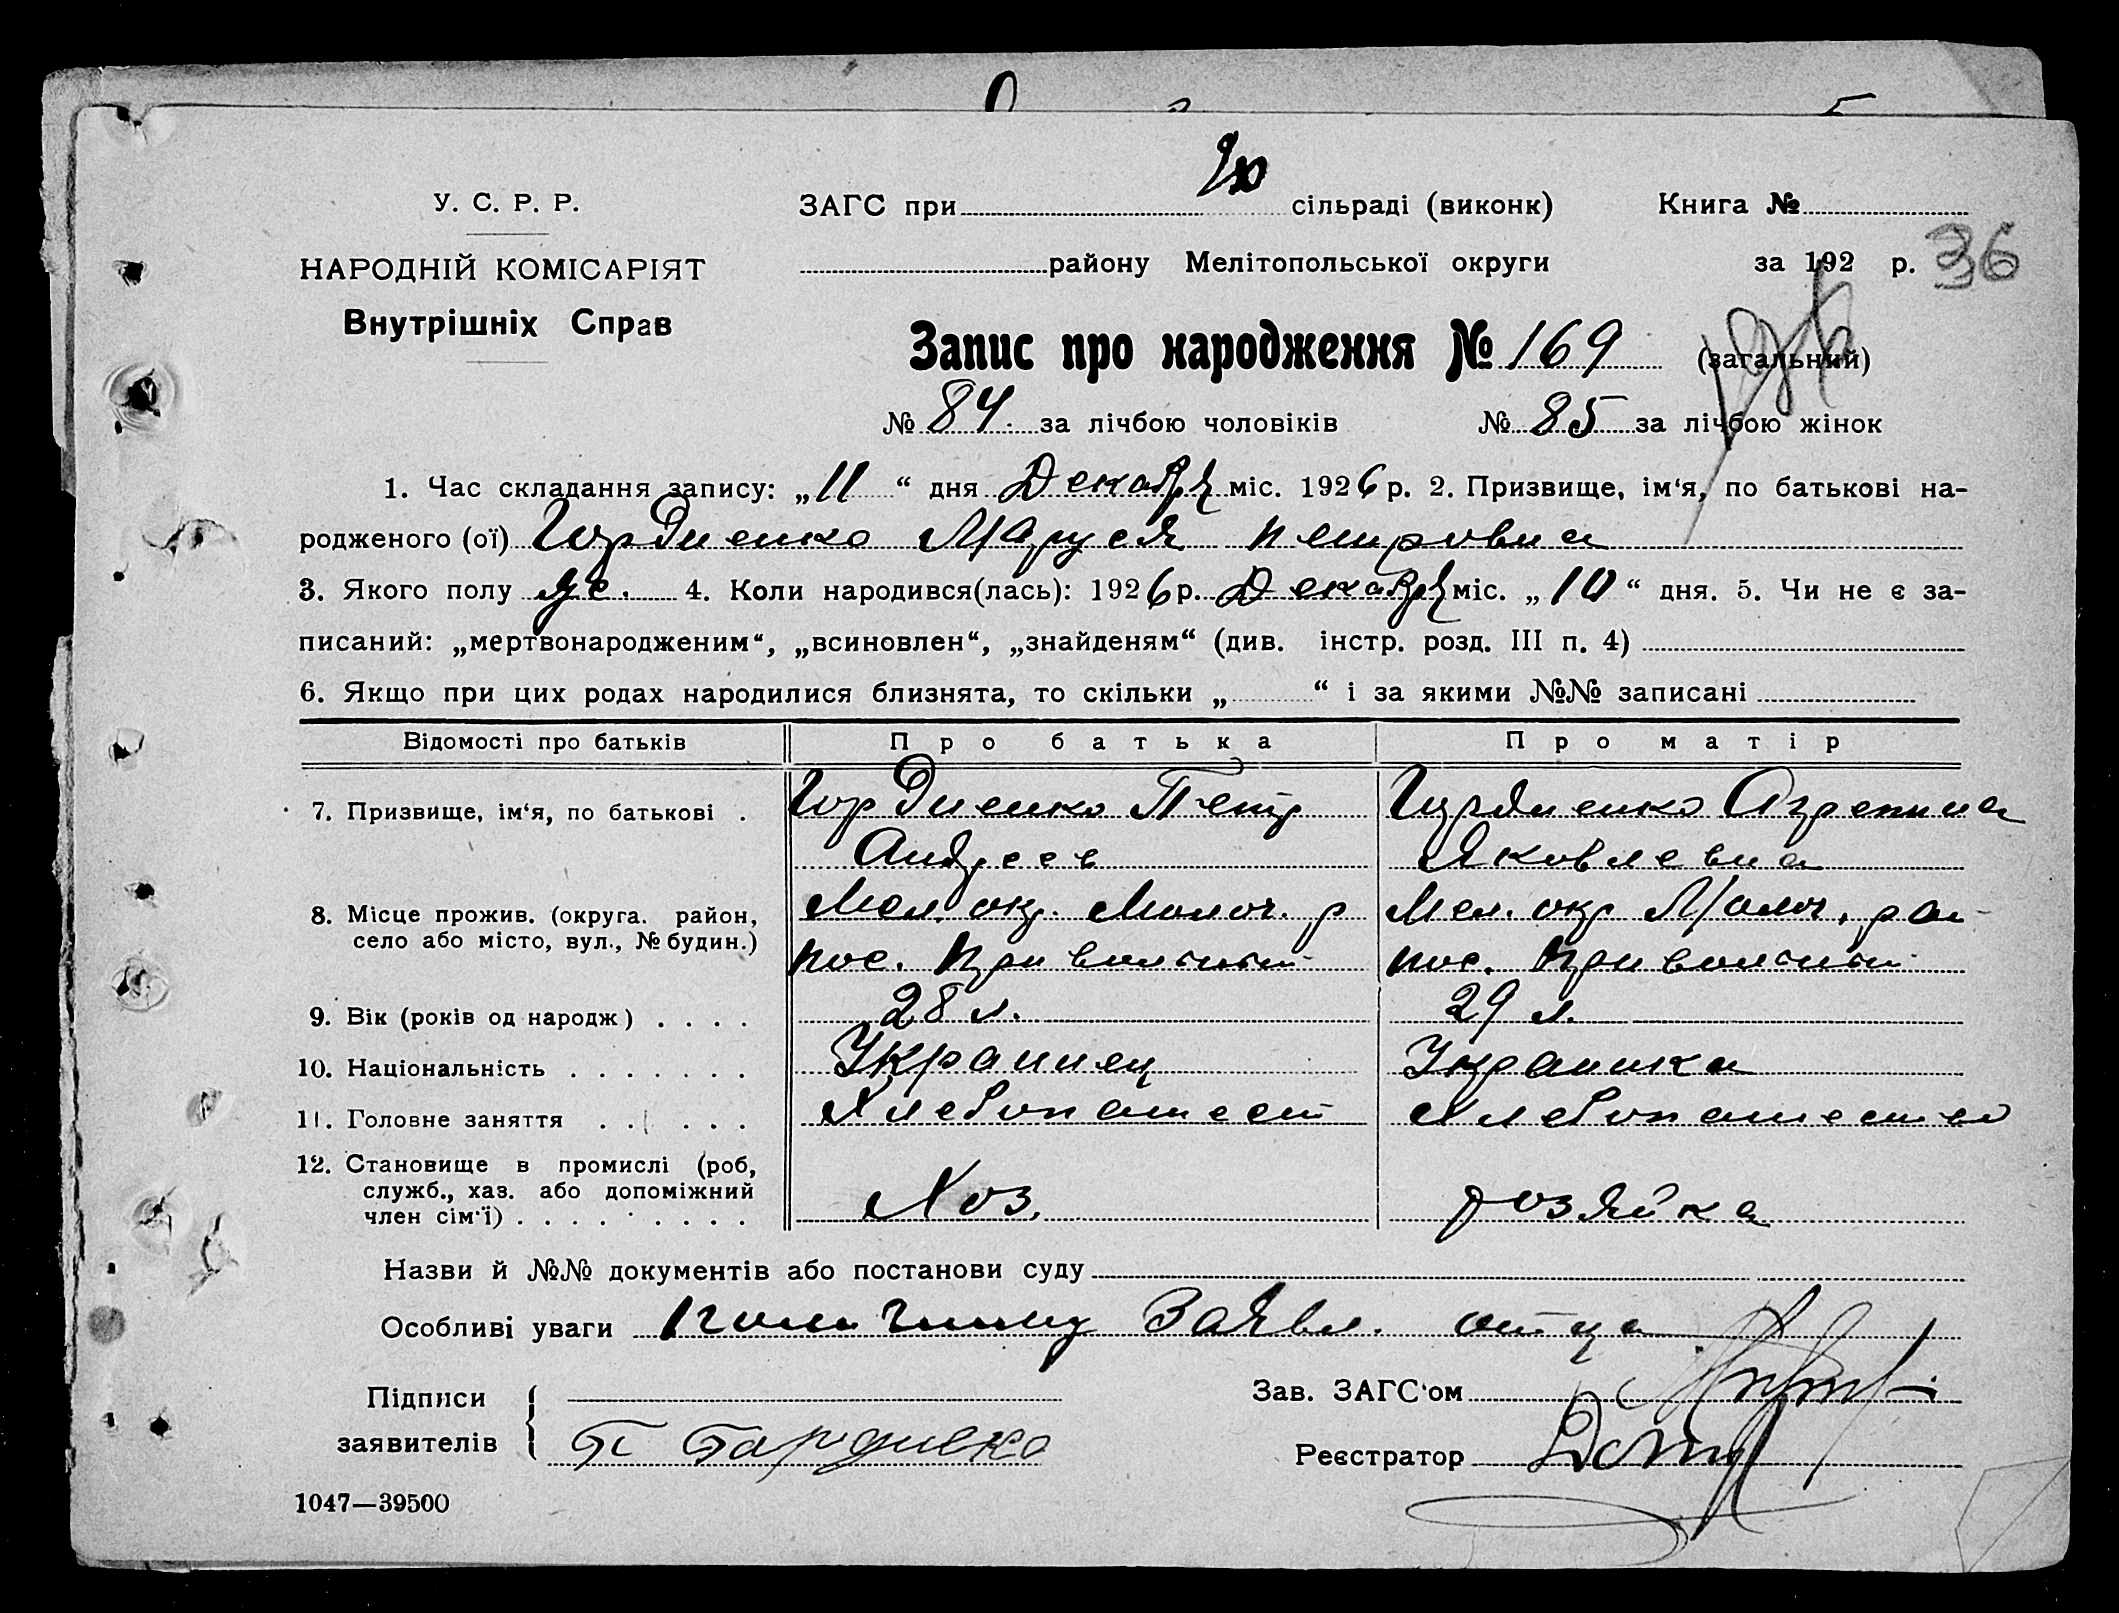 У. С. Р. Р.
НАРОДНІЙ КОМІСАРІЯТ
Внутрішніх Справ
ЗАГС при сільраді (виконк)
Книга №
району Мелітопольської округи
за 192 р. 36
Запис про народження № 169 (загальний)
№ 84. за лічбою чоловіків № 85 за лічбою жінок
1. Час складання запису: „11“ дня Декабря міс. 1926 р. 2. Призвище, ім‘я, по батькові на-
родженого (ої) Гордиенко Маруся Петровна
3. Якого полу же. 4. Коли народився(лась): 1926 р. Декабря міс. „10“ дня. 5. Чи не є за-
писаний: „мертвонародженим“, „всиновлен“, „знайденям“ (див. інстр. розд. III п. 4)
6. Якщо при цих родах народилися близнята, то скільки „ “ і за якими №№ записані
Відомості про батьків Про батька Про матір
7. Призвище, ім‘я, по батькові . Гордиенко Петр Гордиенко Агрепина
Андреев Яковлевна
8. Місце прожив. (округа. район, Мел. окр. Молоч. р Мел. окр Молоч. рай
село або місто, вул., № будин.) пос. Привольный пос. Привольный
9. Вік (років од народж) . . . . 28 л. 29 л.
10. Національність . . . . . . . Украинец Украинка
11. Головне заняття . . . . . . Хлебопашест Хлебопашество
12. Становище в промислі (роб,
служб., хаз. або допоміжний Хоз. хозяйка
член сім‘ї) . . . . . . . . .
Назви й №№ документів або постанови суду
Особливі уваги Заявл. отца
Підписи
заявителів П Гардиеко
Зав. ЗАГС‘ом
Реєстратор
1047—39500